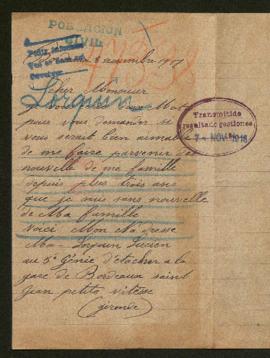 POBLACION
CIVIL
novembre 1917
Lorquin
Cher Monsieur
pour vous demander si
vous serait bien aimable
de me faire parvenir des
nouvelle de me famille
depuis plus trois ans
que je suis sans nouvelle
de Ma famille
Voici Mon Adresse
Lucien
au 5e Génie d'étacher a la
gare de Bordeaux saint
Jean petite vitesse
(gironde)
Transmitido
resultado gestiones
NOV. 1918